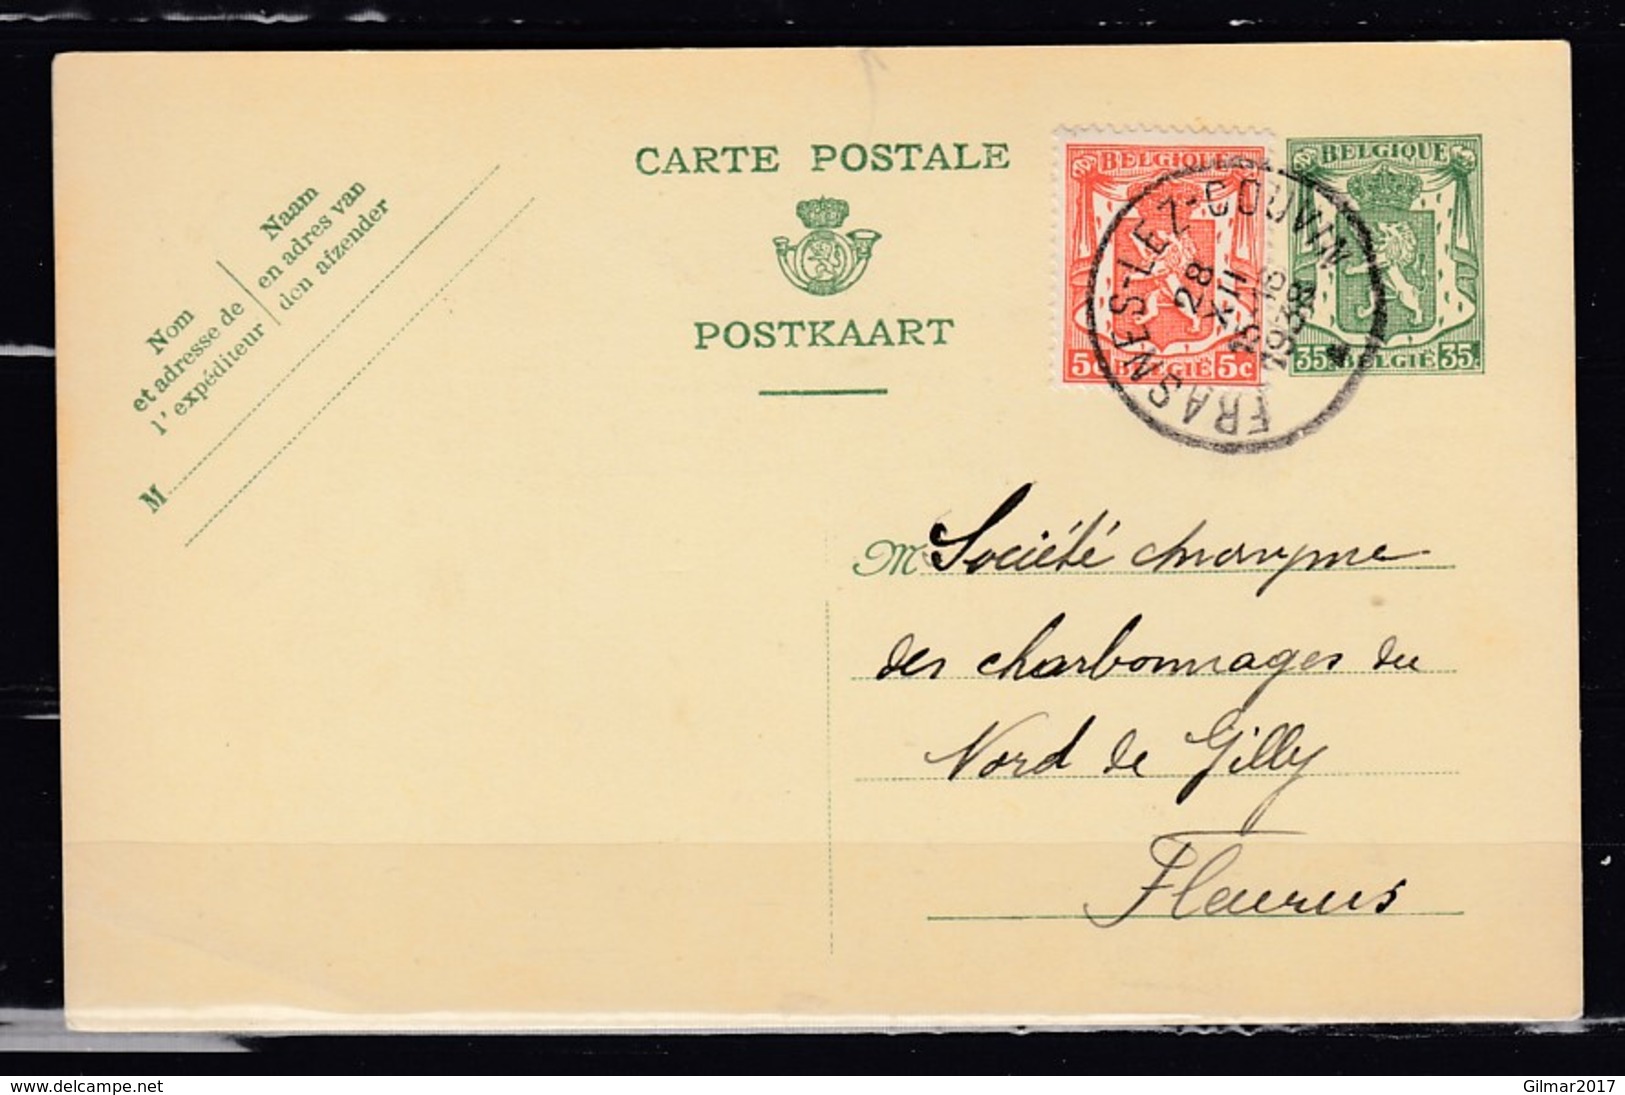 CARTE POSTALE
POSTKAART
Nom
et adresse de
l'expéditeur
Naam
en adres van
den afzender
M
BELGIQUE
5c BELGIË 5c
BELGIQUE
35c BELGIË 35c
FRASNES-LEZ-COUVIN
28
XII
15-16
1938
M Société Anonyme
des charbonnages du
Nord de Gilly
Fleurus
www.delcampe.net
Gilmar2017